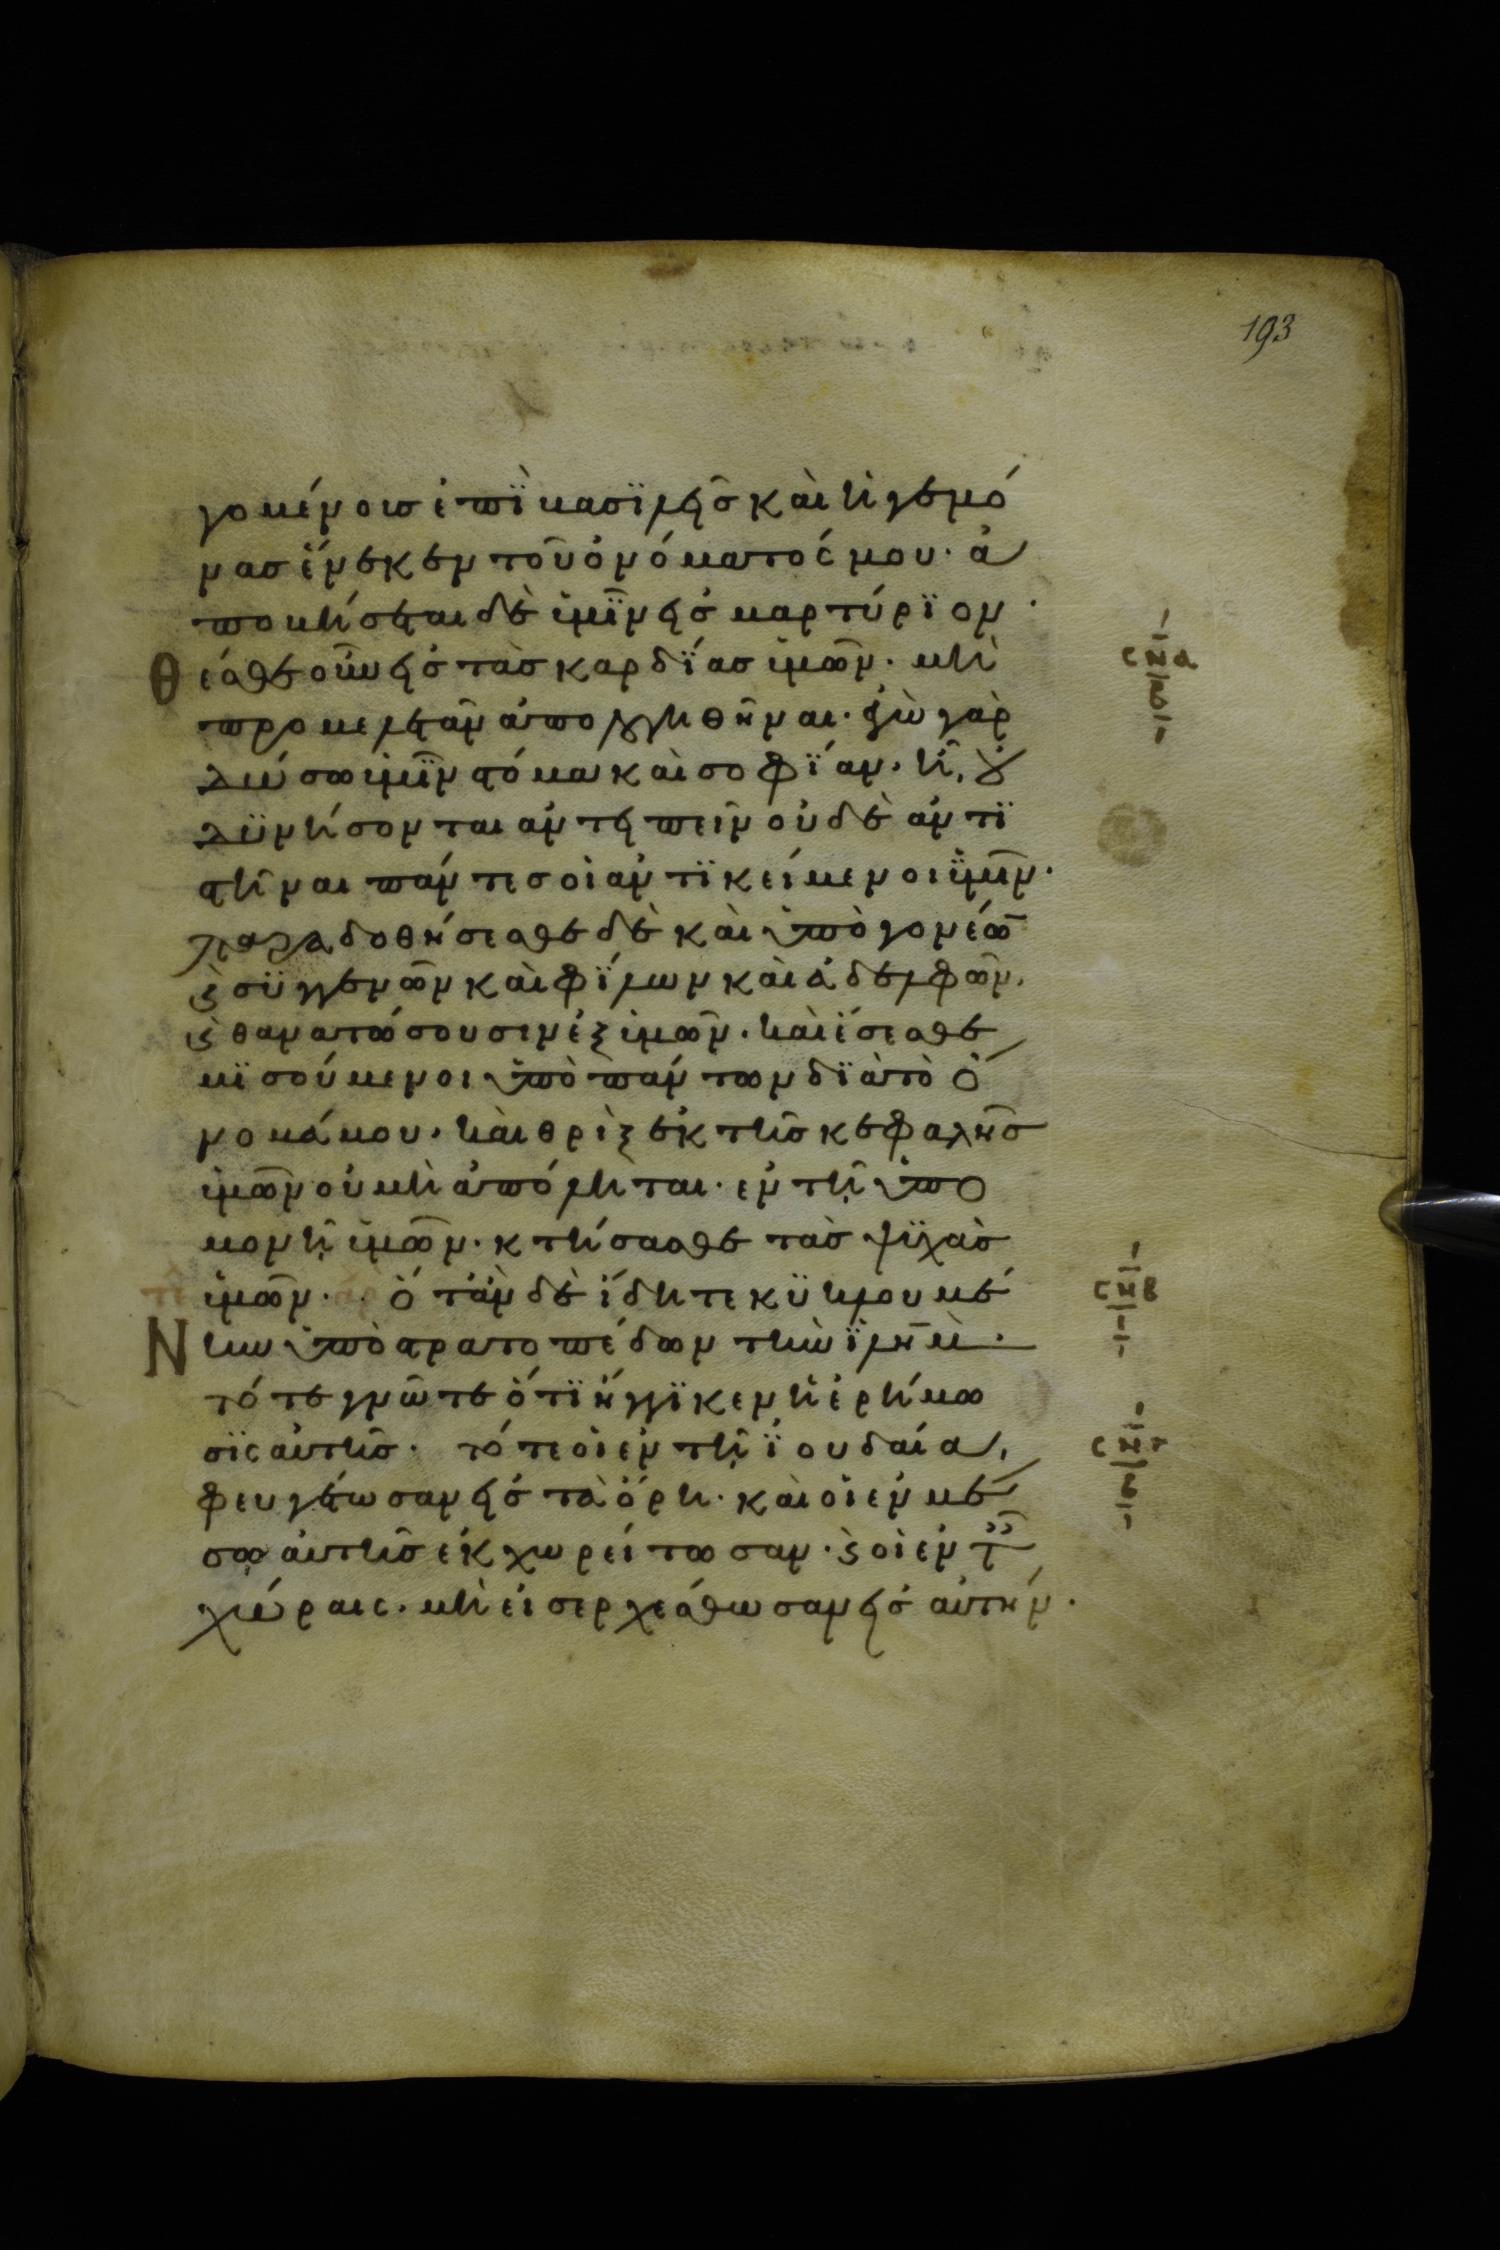 193
γομένοισ ἐπῒ βασϊλεῖσ καὶ ἡγεμό
νασ ἕνεκεν τοῦ ὀνόματός μου· ἀ
ποβήσεται δὲ ὑμῖν εἰσ μαρτύρϊον·
Θέσθε οὖν εἰσ τὰσ καρδΐασ ὑμῶν· μὴ
προμελετᾶν ἀπολογηθῆναι· ἐγὼ γὰρ
δώσω ὑμῖν στόμα καὶ σοφΐαν· ἧ, οὐ
δϋνήσονται ἀντειπεῖν οὐδὲ ἀντϊ
στῆναι πάντεσ οἱ ἀντϊκείμενοι ὑμῖν·
παραδοθήσεσθε δὲ καὶ ὑπὸ γονέω̅
ϗ̀ συγγενῶν καὶ φΐλων καὶ ἀδελφῶν,
ϗ̀ θανατώσουσιν ἐξ ὑμῶν· καὶ ἔσεσθε
μϊσούμενοι ὑπὸ πάντων δϊὰ τὸ ὄ
νομά μου· καὶ θρὶξ ἐκ τῆσ κεφαλῆσ
ὑμῶν οὐ μὴ ἀπόληται· ἐν τῇ ὑπο
μονῇ ὑμῶν· κτήσασθε τὰσ ψϋχὰσ
ὑμῶν· · ὅταν δὲ ἴδητε κϋκλουμέ
Νην ὑπὸ στρατοπέδων τὴν ϊλη̅μ̀·
τότε γνῶτε ὅτϊ ἤγγϊκεν ἡ ἐρήμω
σϊς αὐτῆσ· τότε οἱ ἐν τῇ ϊουδαία,
φευγέτωσαν εἰσ τὰ ὄρη· καὶ οἱ ἐν μέ
σῳ αὐτῆσ ἐκχωρείτωσαν· ϗ̀ οἱ ἐν τ
χώραις· μὴ εἰσερχέσθωσαν εἰσ αὐτήν·
ςνα
ςνβ
ςνγ